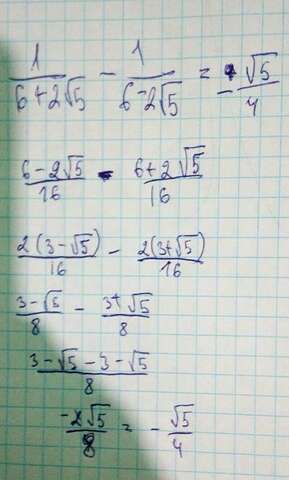 1/(6+2√5) - 1/(6-2√5) = -√5/4
(6-2√5)/16 - (6+2√5)/16
2(3-√5)/16 - 2(3+√5)/16
(3-√5)/8 - (3+√5)/8
(3-√5-3-√5)/8
-2√5/8 = -√5/4